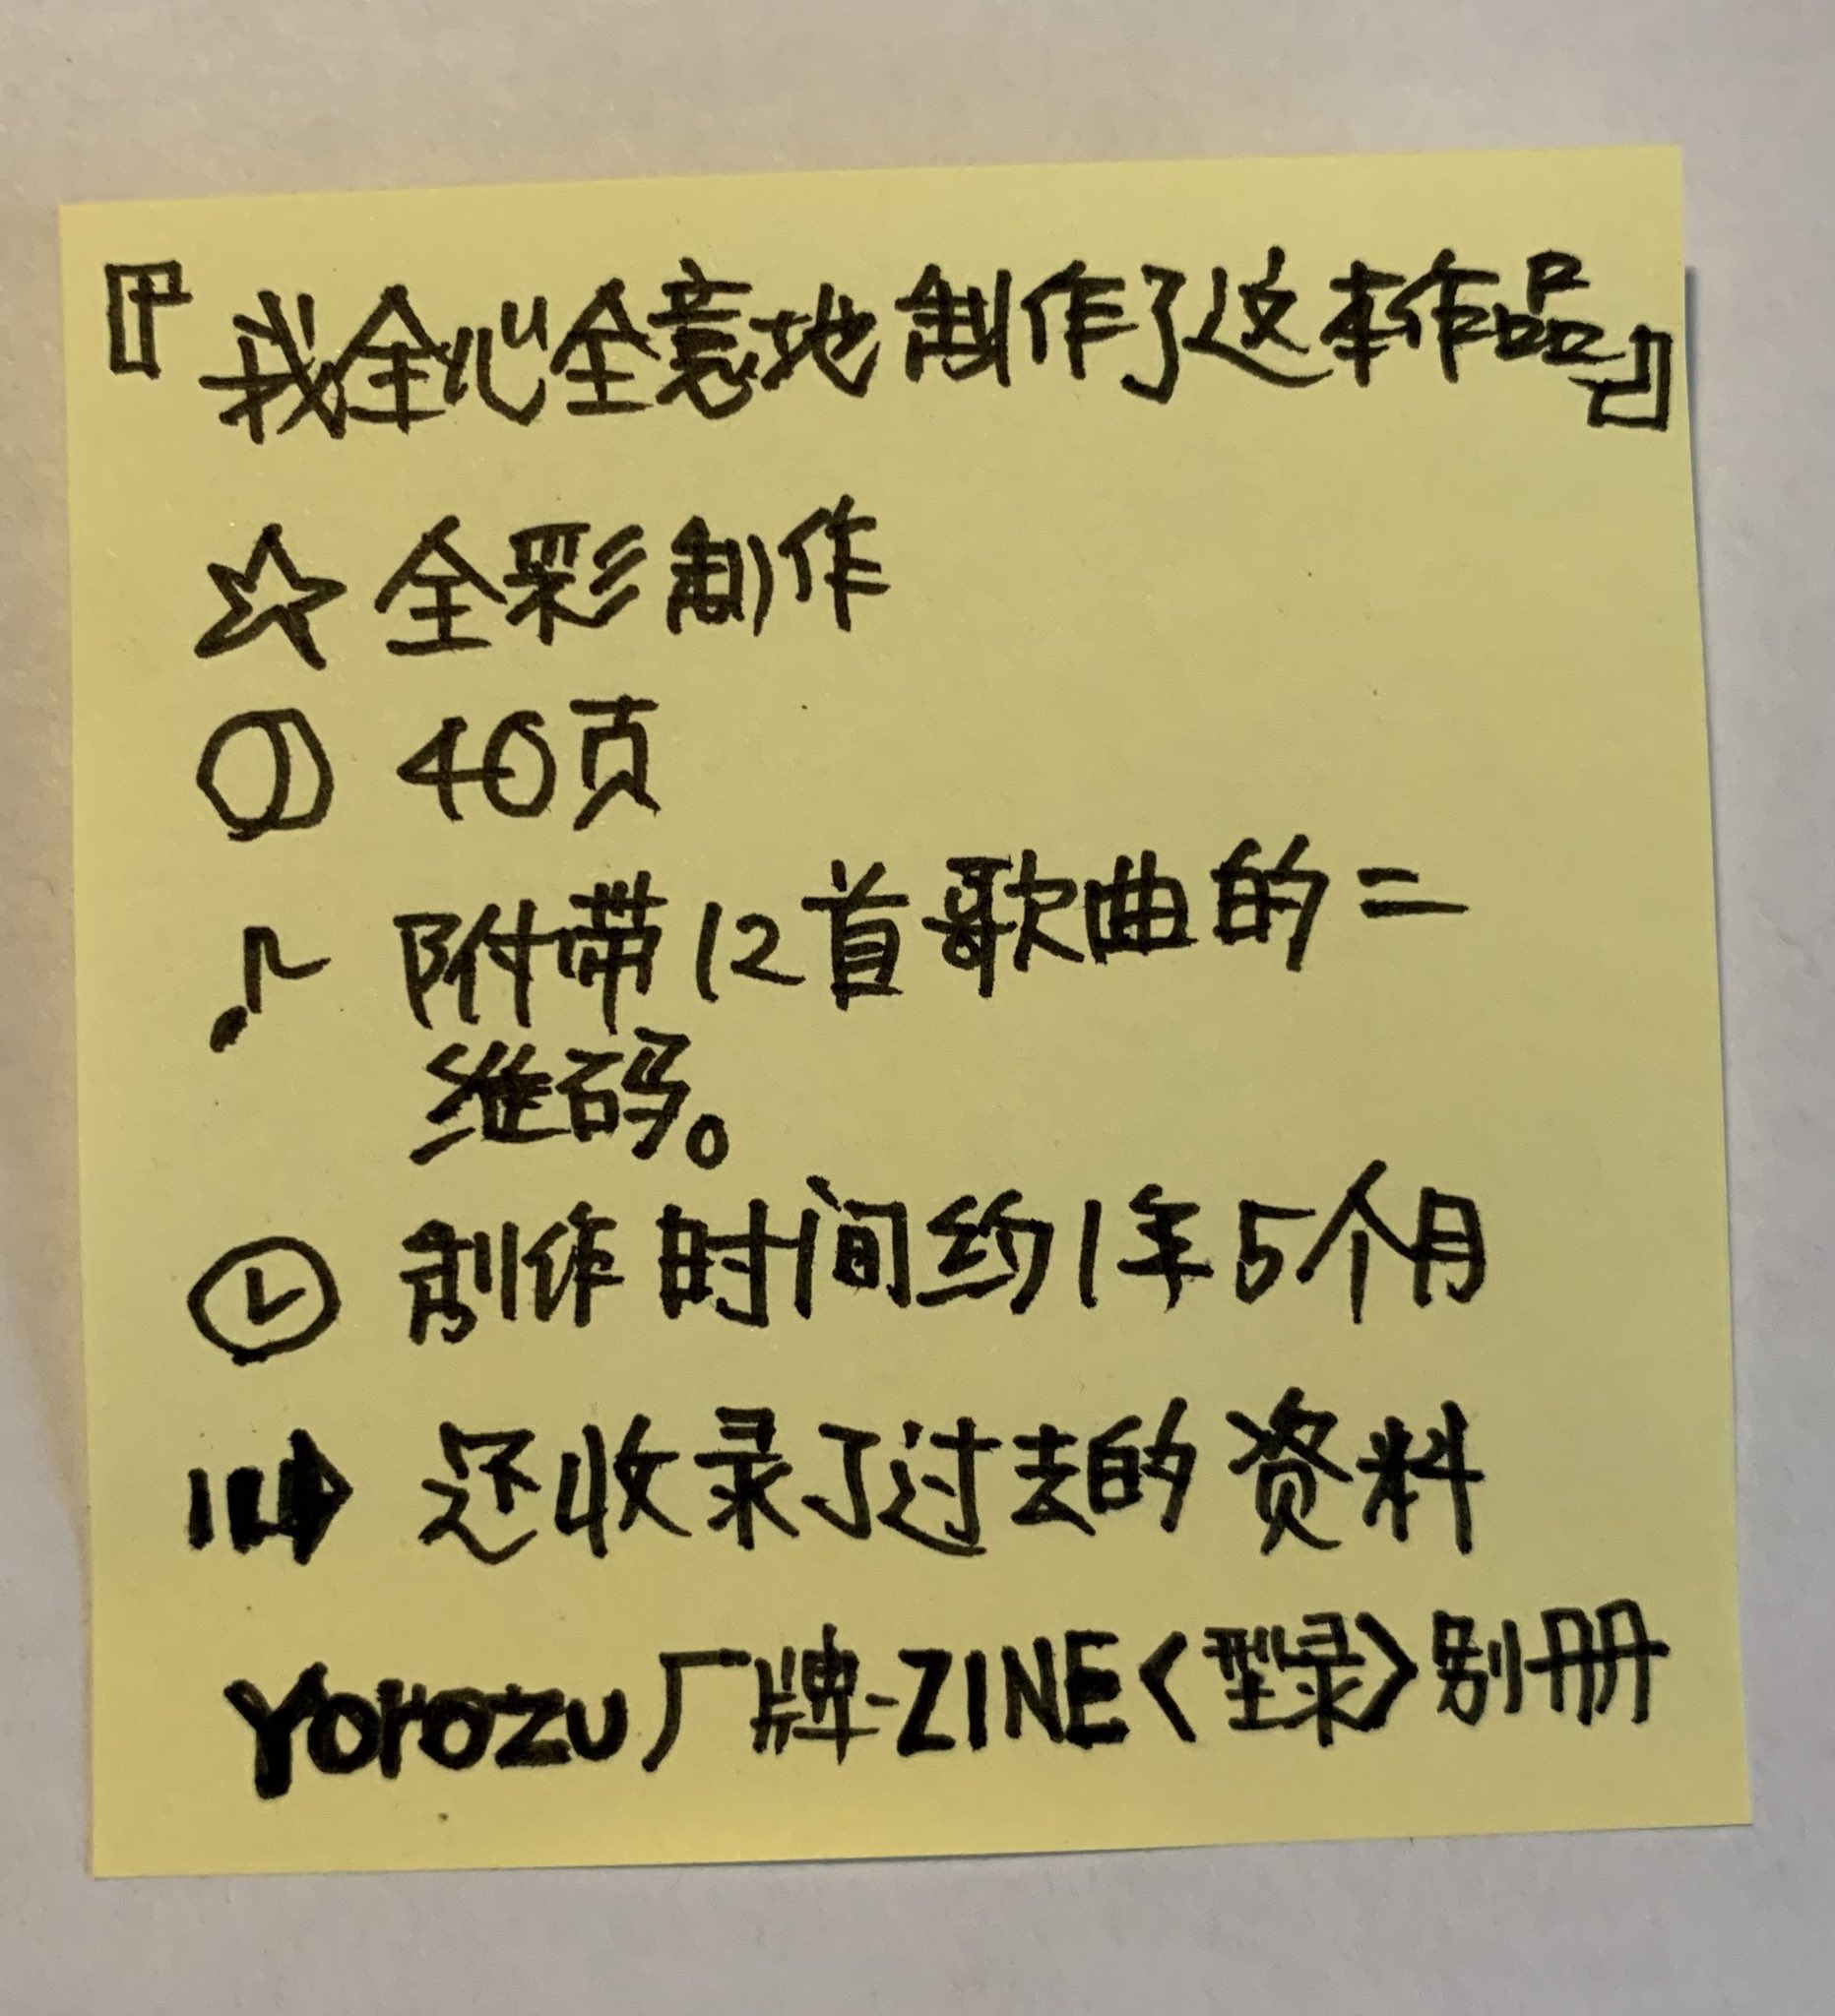 『我全心全意地制作了这本作品』
☆ 全彩制作
40页
♪ 附带12首歌曲的二
维码。
制作时间约1年5个月
还收录了过去的资料
Yorozu厂牌-ZINE<型录>别册